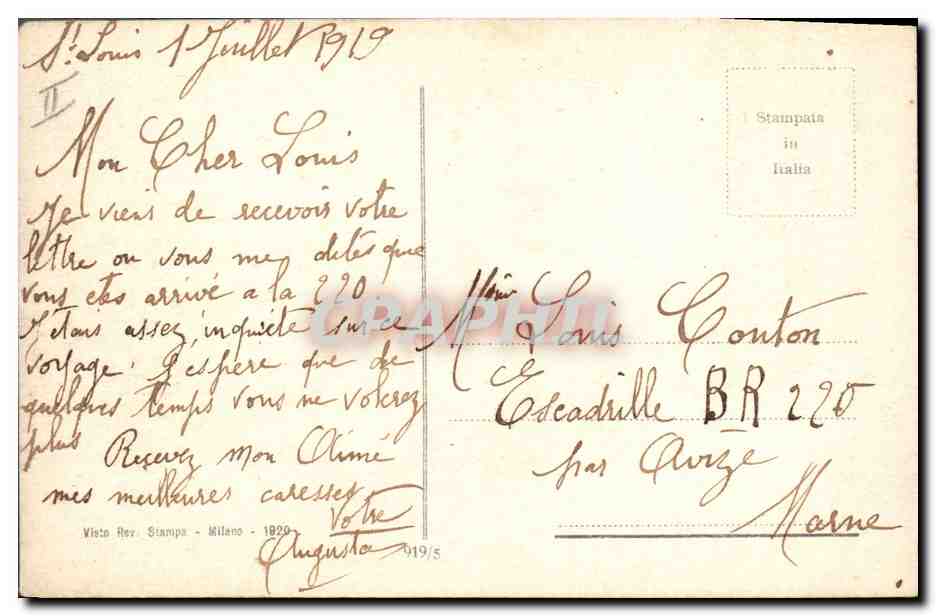 St Louis 1 Juillet 1919
II
Mon Cher Louis
Je viens de recevoir votre
lettre ou vous me dites que
vous etes arrivé a la 220
J'etais assez inquiete sur ce
voyage. J'espere que de
quelques temps vous ne volerez
plus
Recevez mon Aimé
mes meilleures caresses
Votre
Augusta
Visto Rev. Stampa - Milano - 1920
919/5
Stampata
in
Italia
Mr Louis Couton
Escadrille BR 220
par Avize
Marne
CRAPHIL